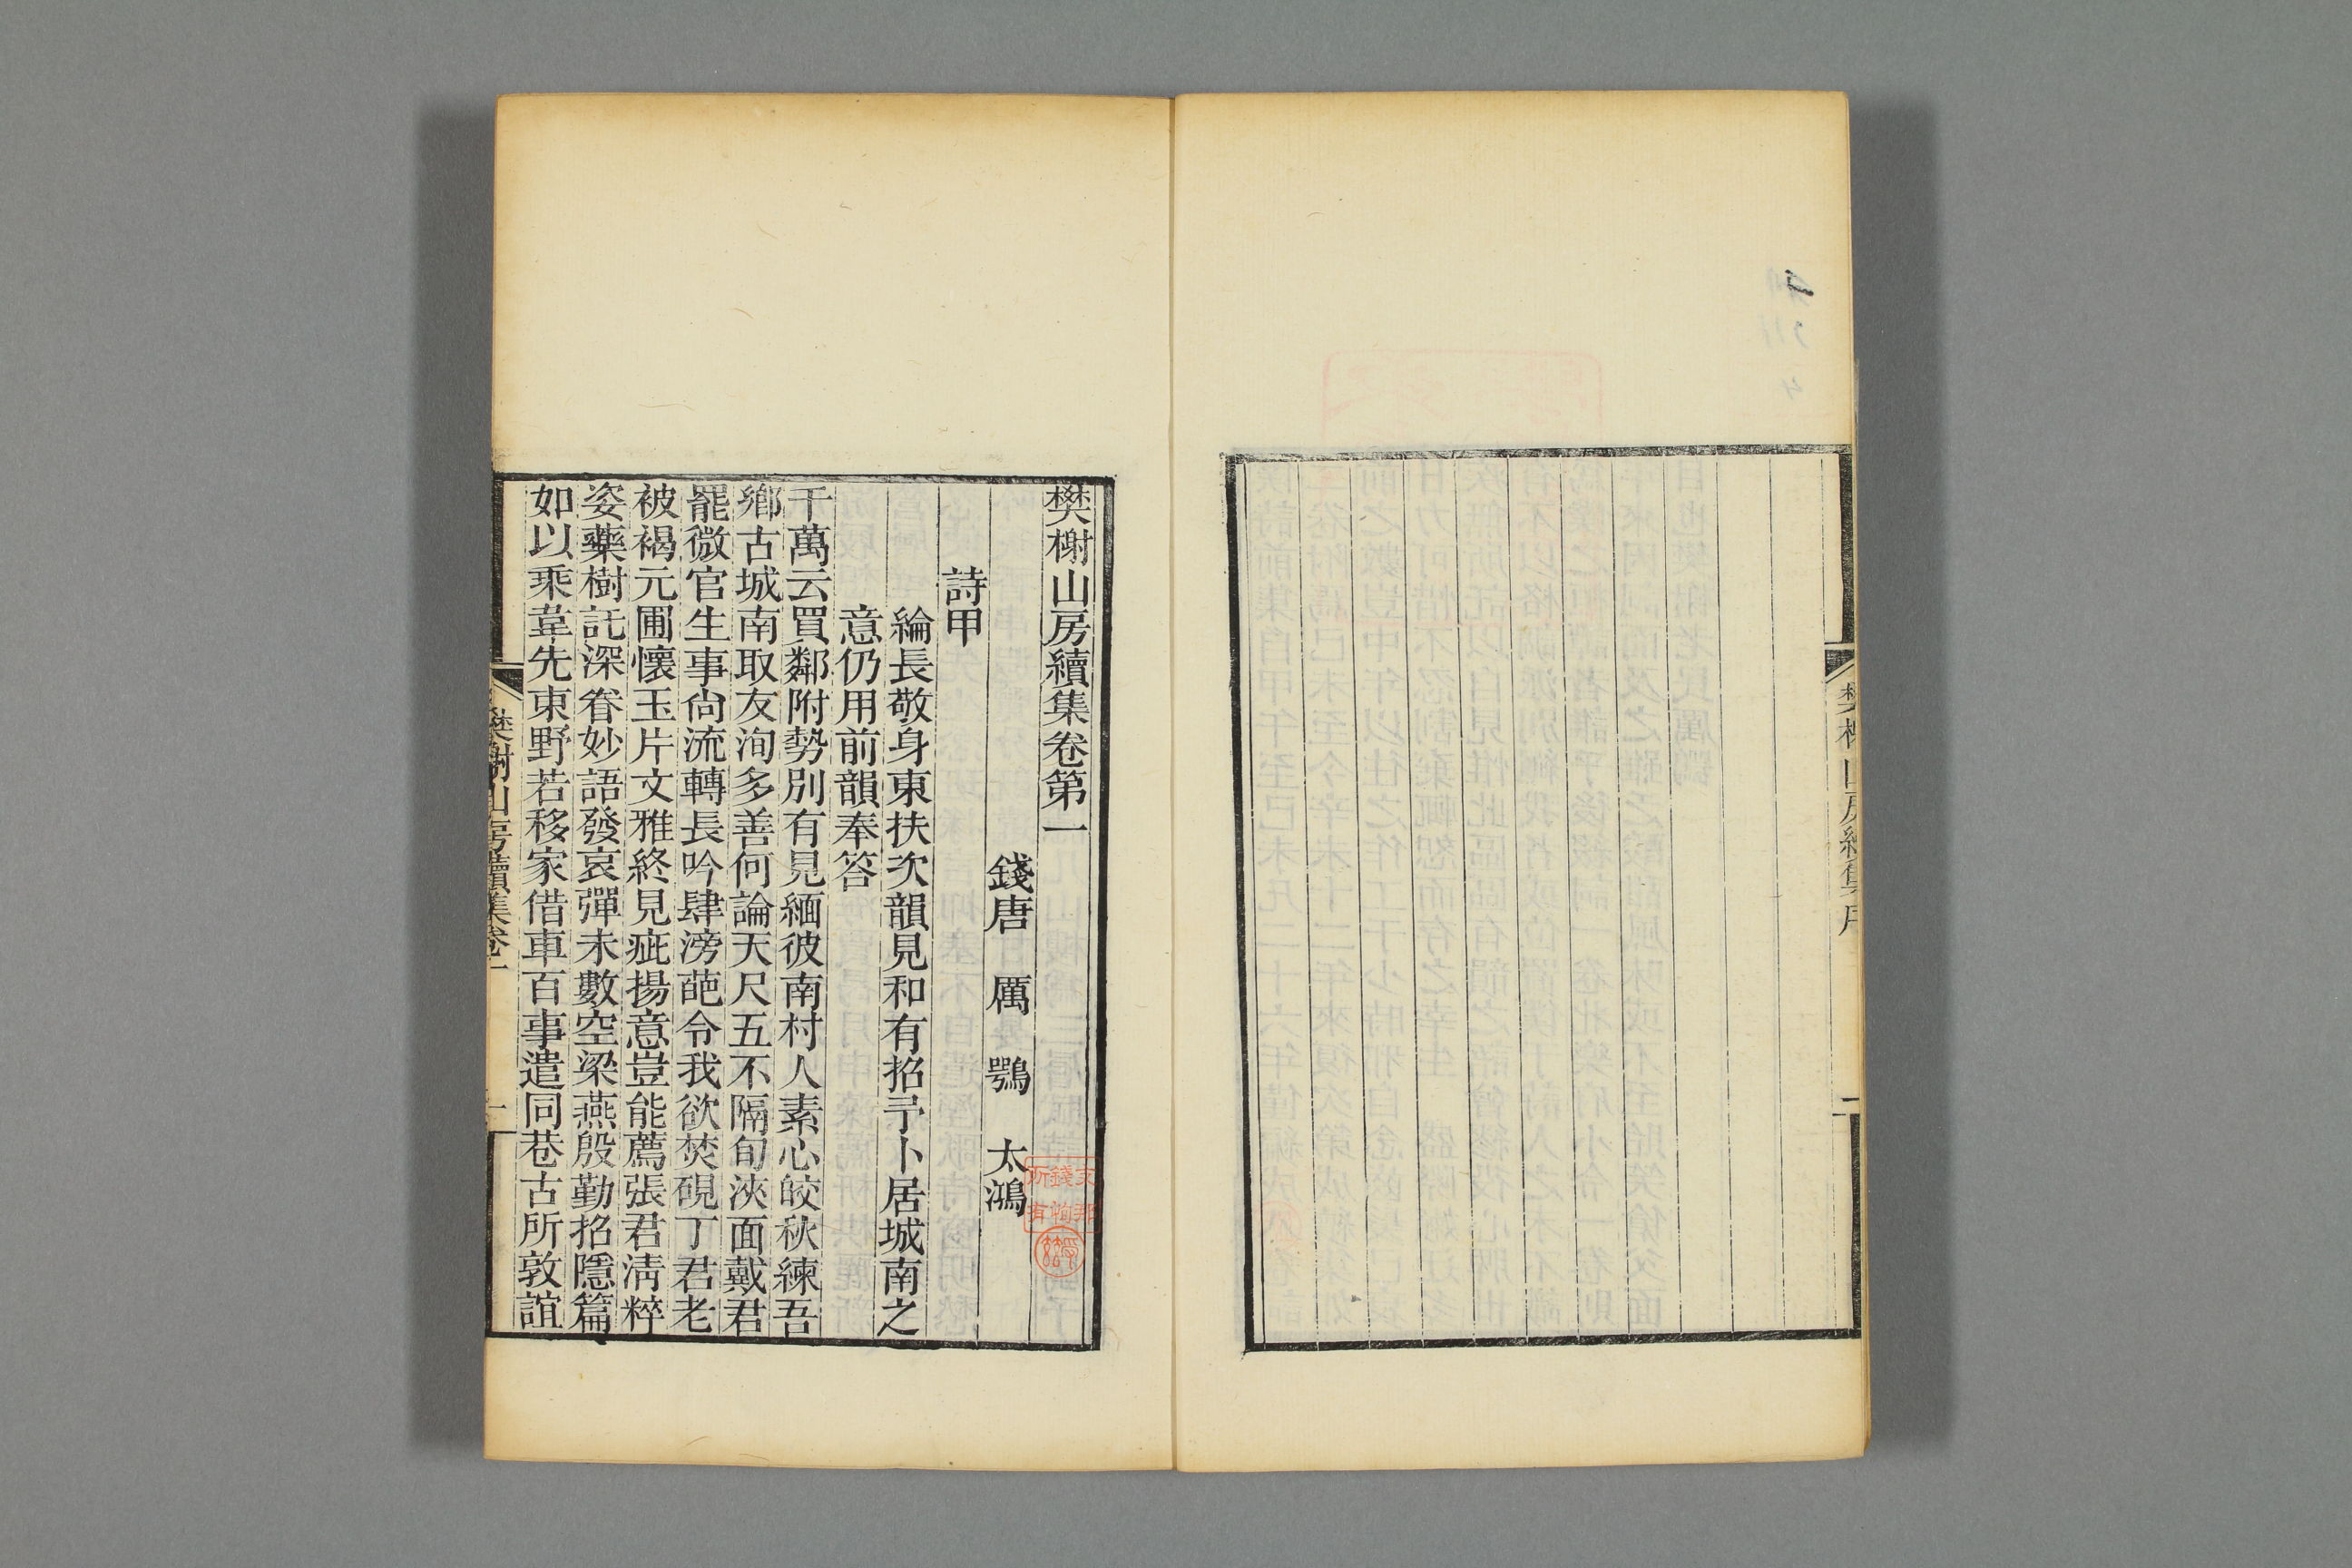 樊榭山房續集卷第一
錢唐 厲 鶚 太鴻
詩甲
綸長敬身東扶次韻見和有招予卜居城南之
意仍用前韻奉答
千萬云買鄰附勢別有見緬彼南村人素心皎秋練吾
鄉古城南取友洵多善何論天尺五不隔旬浹面戴君
罷微官生事尙流轉長吟肆滂葩令我欲焚硯丁君老
被褐元圃懷玉片文雅終見疵揚意豈能薦張君淸粹
姿藥樹託深眷妙語發哀彈未數空梁燕殷勤招隱篇
如以乘韋先東野若移家借車百事遣同巷古所敦誼
樊榭山房續集卷一
一
樊榭山房續集序
二